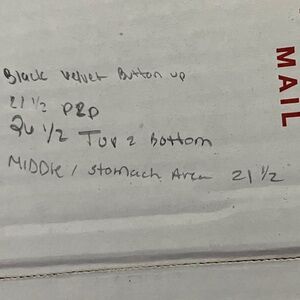 Black velvet Button up
21 1/2 P2P
26 1/2 Top 2 Bottom
MIDDle / Stomach Area 21 1/2
MAIL